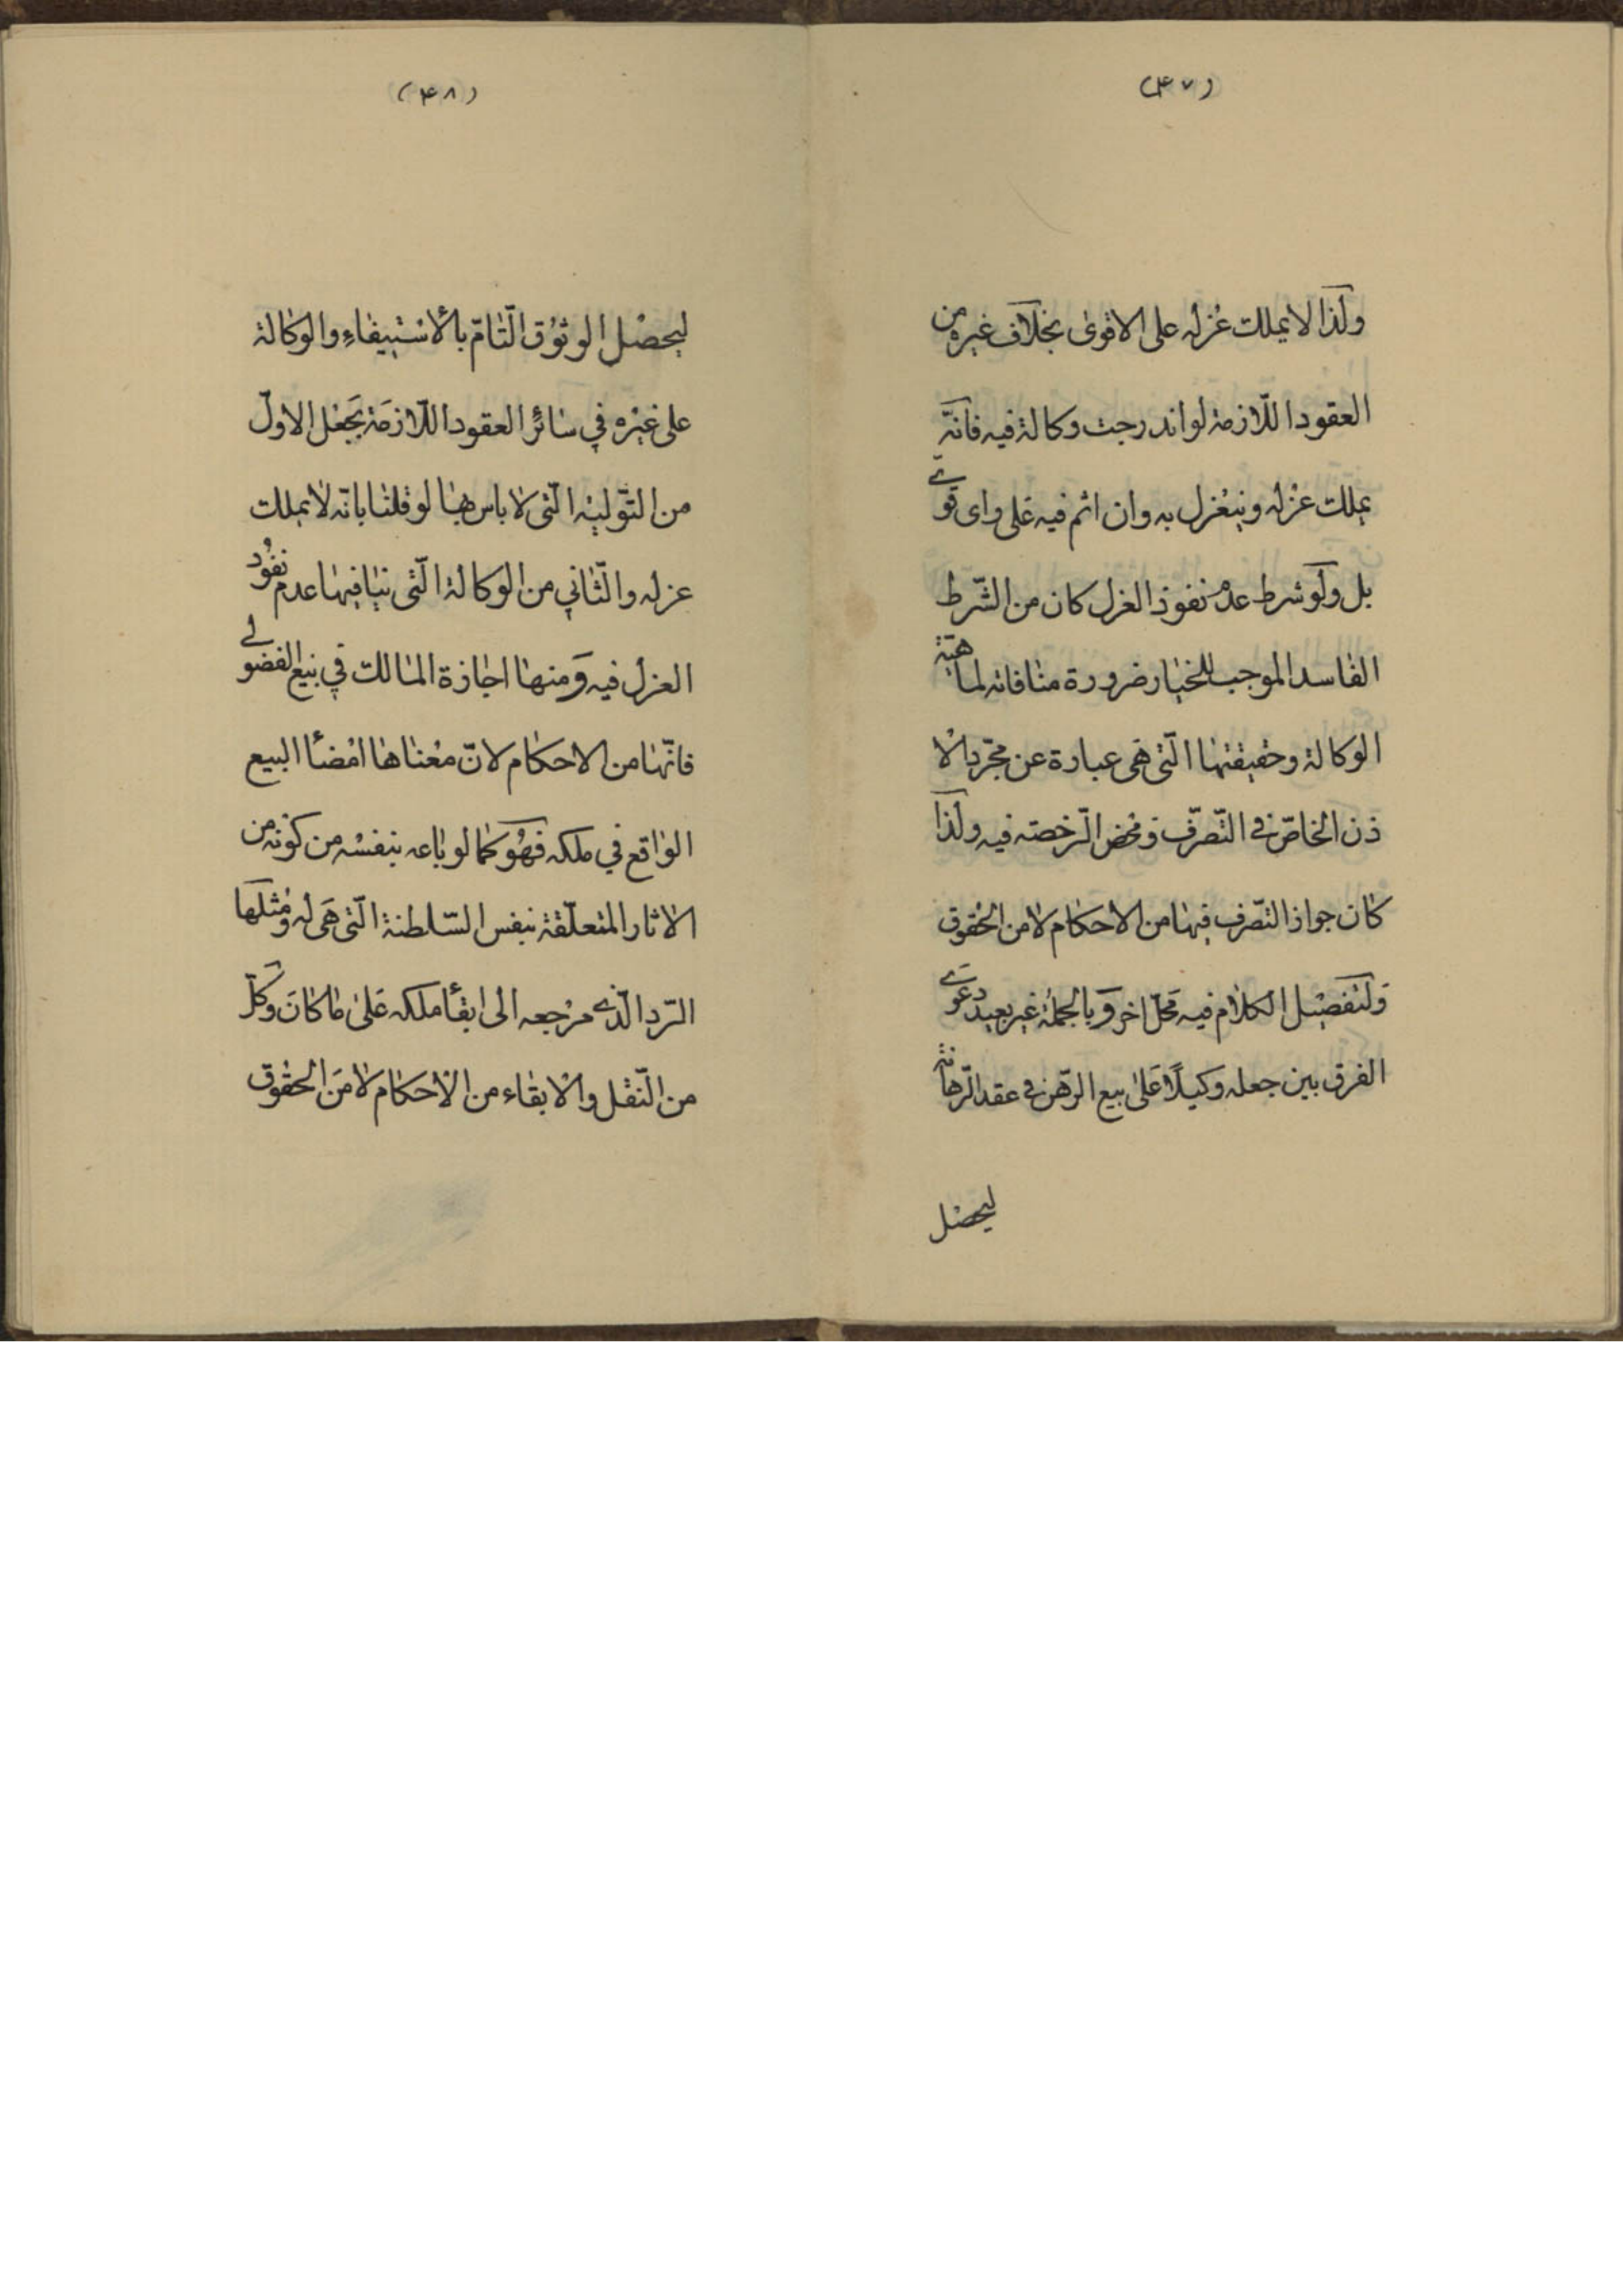 (۴۷)
ولذا لا يملك عزله على الاقوى بخلاف غيره من
العقود اللّازمة لو اندرجت وكالة فيه فانّه
يملك عزله وينعزل به وان اثم فيه على واى قوّى
بل ولو شرط عدم نفوذ العزل كان من الشّرط
الفاسد الموجب للخيار ضرورة منافاته لماهيّة
الوكالة وحقيقتها الّتى هى عبارة عن مجّرد الا
ذن الخاصّ فى التّصرّف ومحض الرّخصة فيه ولذا
كان جواز التصّرف فيها من الاحكام لا من الحقوق
ولتفصيل الكلام فيه محلّ اخر وبالجملة غير بعيد دعوى
الفرق بين جعله وكيلًا على بيع الرّهن فى عقد الرّهانة
ليحصل
(۴۸)
ليحصل الوثوق التّامّ بالأستيفاءِ والوكالة
على غيره في سائر العقود اللّازمة بجعل الاول
من التّولية الّتى لا باس بها لو قلنا بانّه لا يملك
عزله والثّاني من الوكالة الّتى ينافيها عدم نفوذ
العزل فيه ومنها اجازة المالك في بيع الفضولى
فانّها من الاحكام لانّ معناها امضأ البيع
الواقع في ملكه فهو كما لو باعه بنفسه من كونه من
الاثار المتعلّقة بنفس السّلطنة الّتى هى له ومثلها
الرّد الّذى مرجعه الى ابقأ ملكه على ما كان وكلّ
من النّقل والابقاء من الأحكام لا من الحقوق